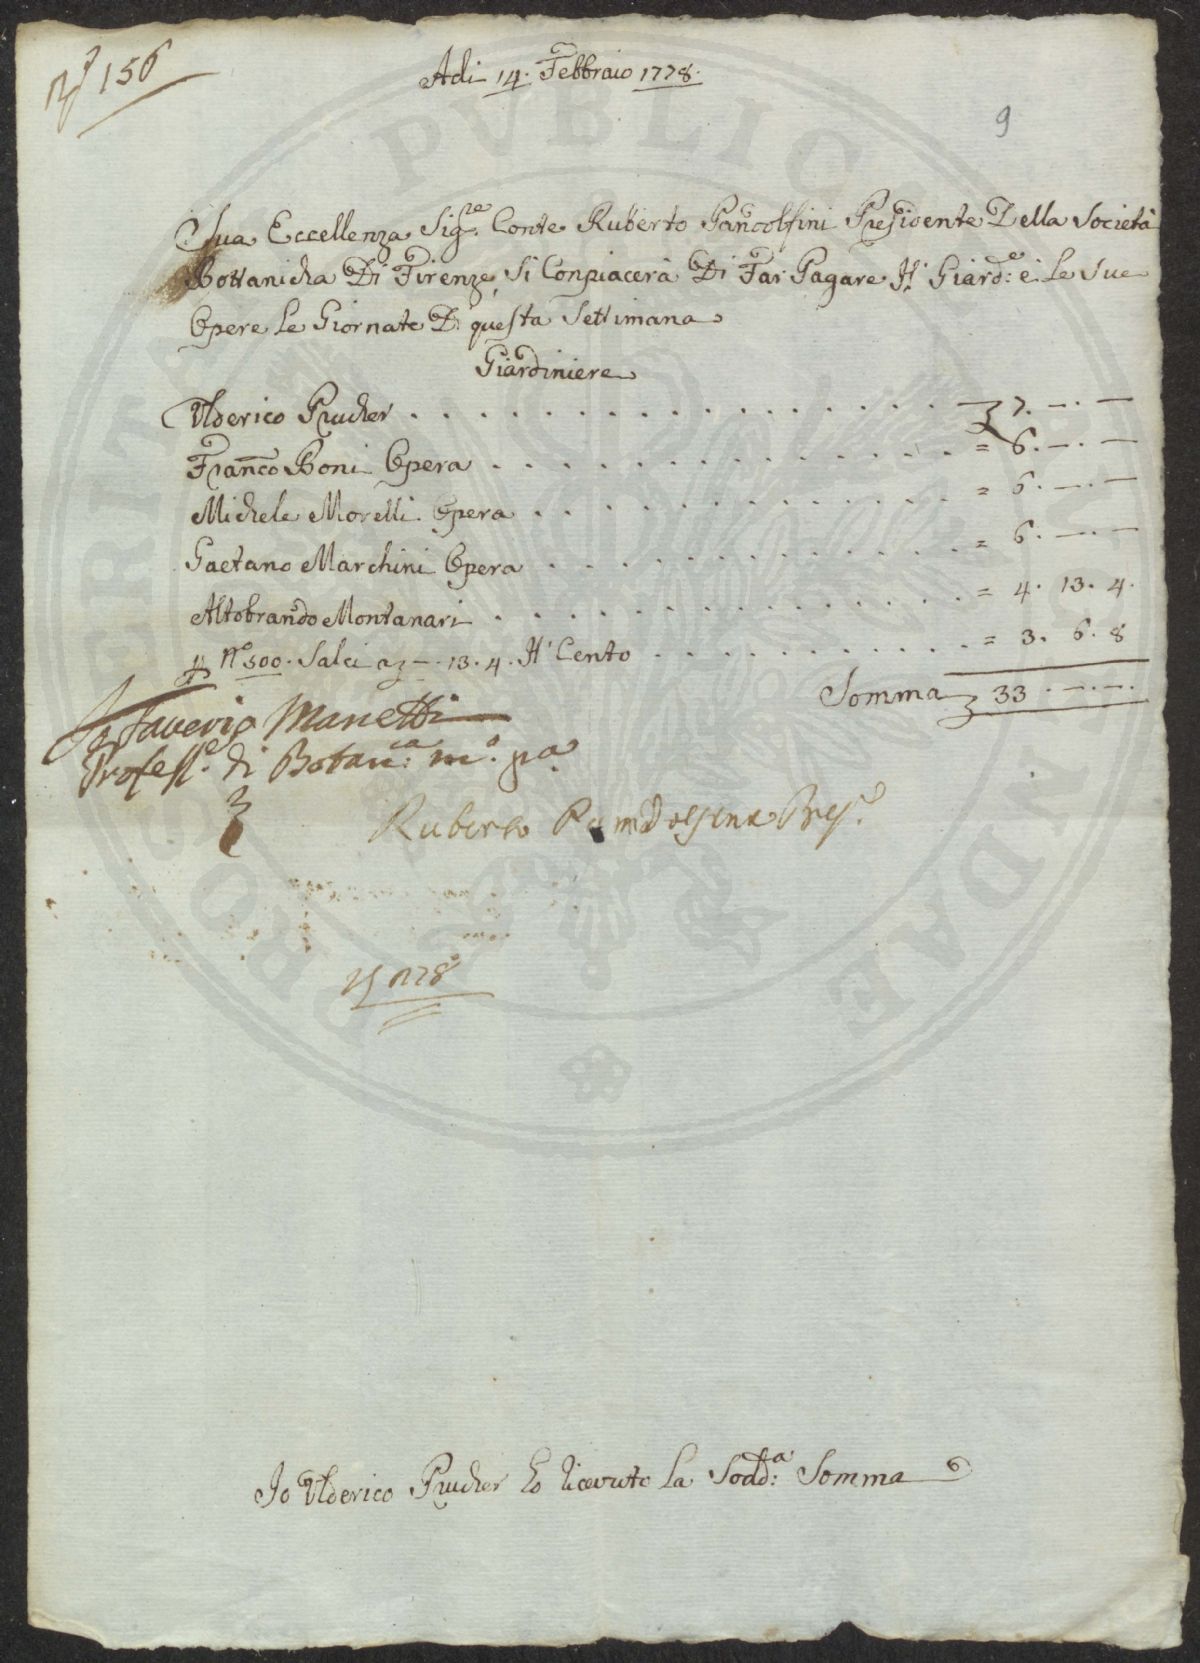 N.º 156
Adi 14. Febbraio 1778.
9
Sua Eccellenza Sig.re Conte Ruberto Pandolfini Presidente Della Società
Bottanicha Di Firenze, Si Conpiacerà Di Far Pagare Il Giard.e e Le Sue
Opere Le Giornate D. questa Settimana
Giardiniere
Ulderico Prucher . . . . . . . . . . . . . . . . . 7. —. —
Franco Boni Opera . . . . . . . . . . . . . . = 6. —. —
Michele Morelli Opera . . . . . . . . . . . . = 6. —. —
Gaetano Marchini Opera . . . . . . . . . . . = 6. —. —
Altobrando Montanari . . . . . . . . . . . . = 4. 13. 4.
No 500. Salci a —. 13. 4. Il Cento . . . . . . . . . = 3. 6. 8
Somma 33. —. —.
Io Saverio Manetti
Profess.e di Botan.ca m.o pa
Ruberto Pandolfini Pres.e
1778
Io Ulderico Prucher ho ricevuto la Sodd.a Somma
PRO VERITATE PVBLICA